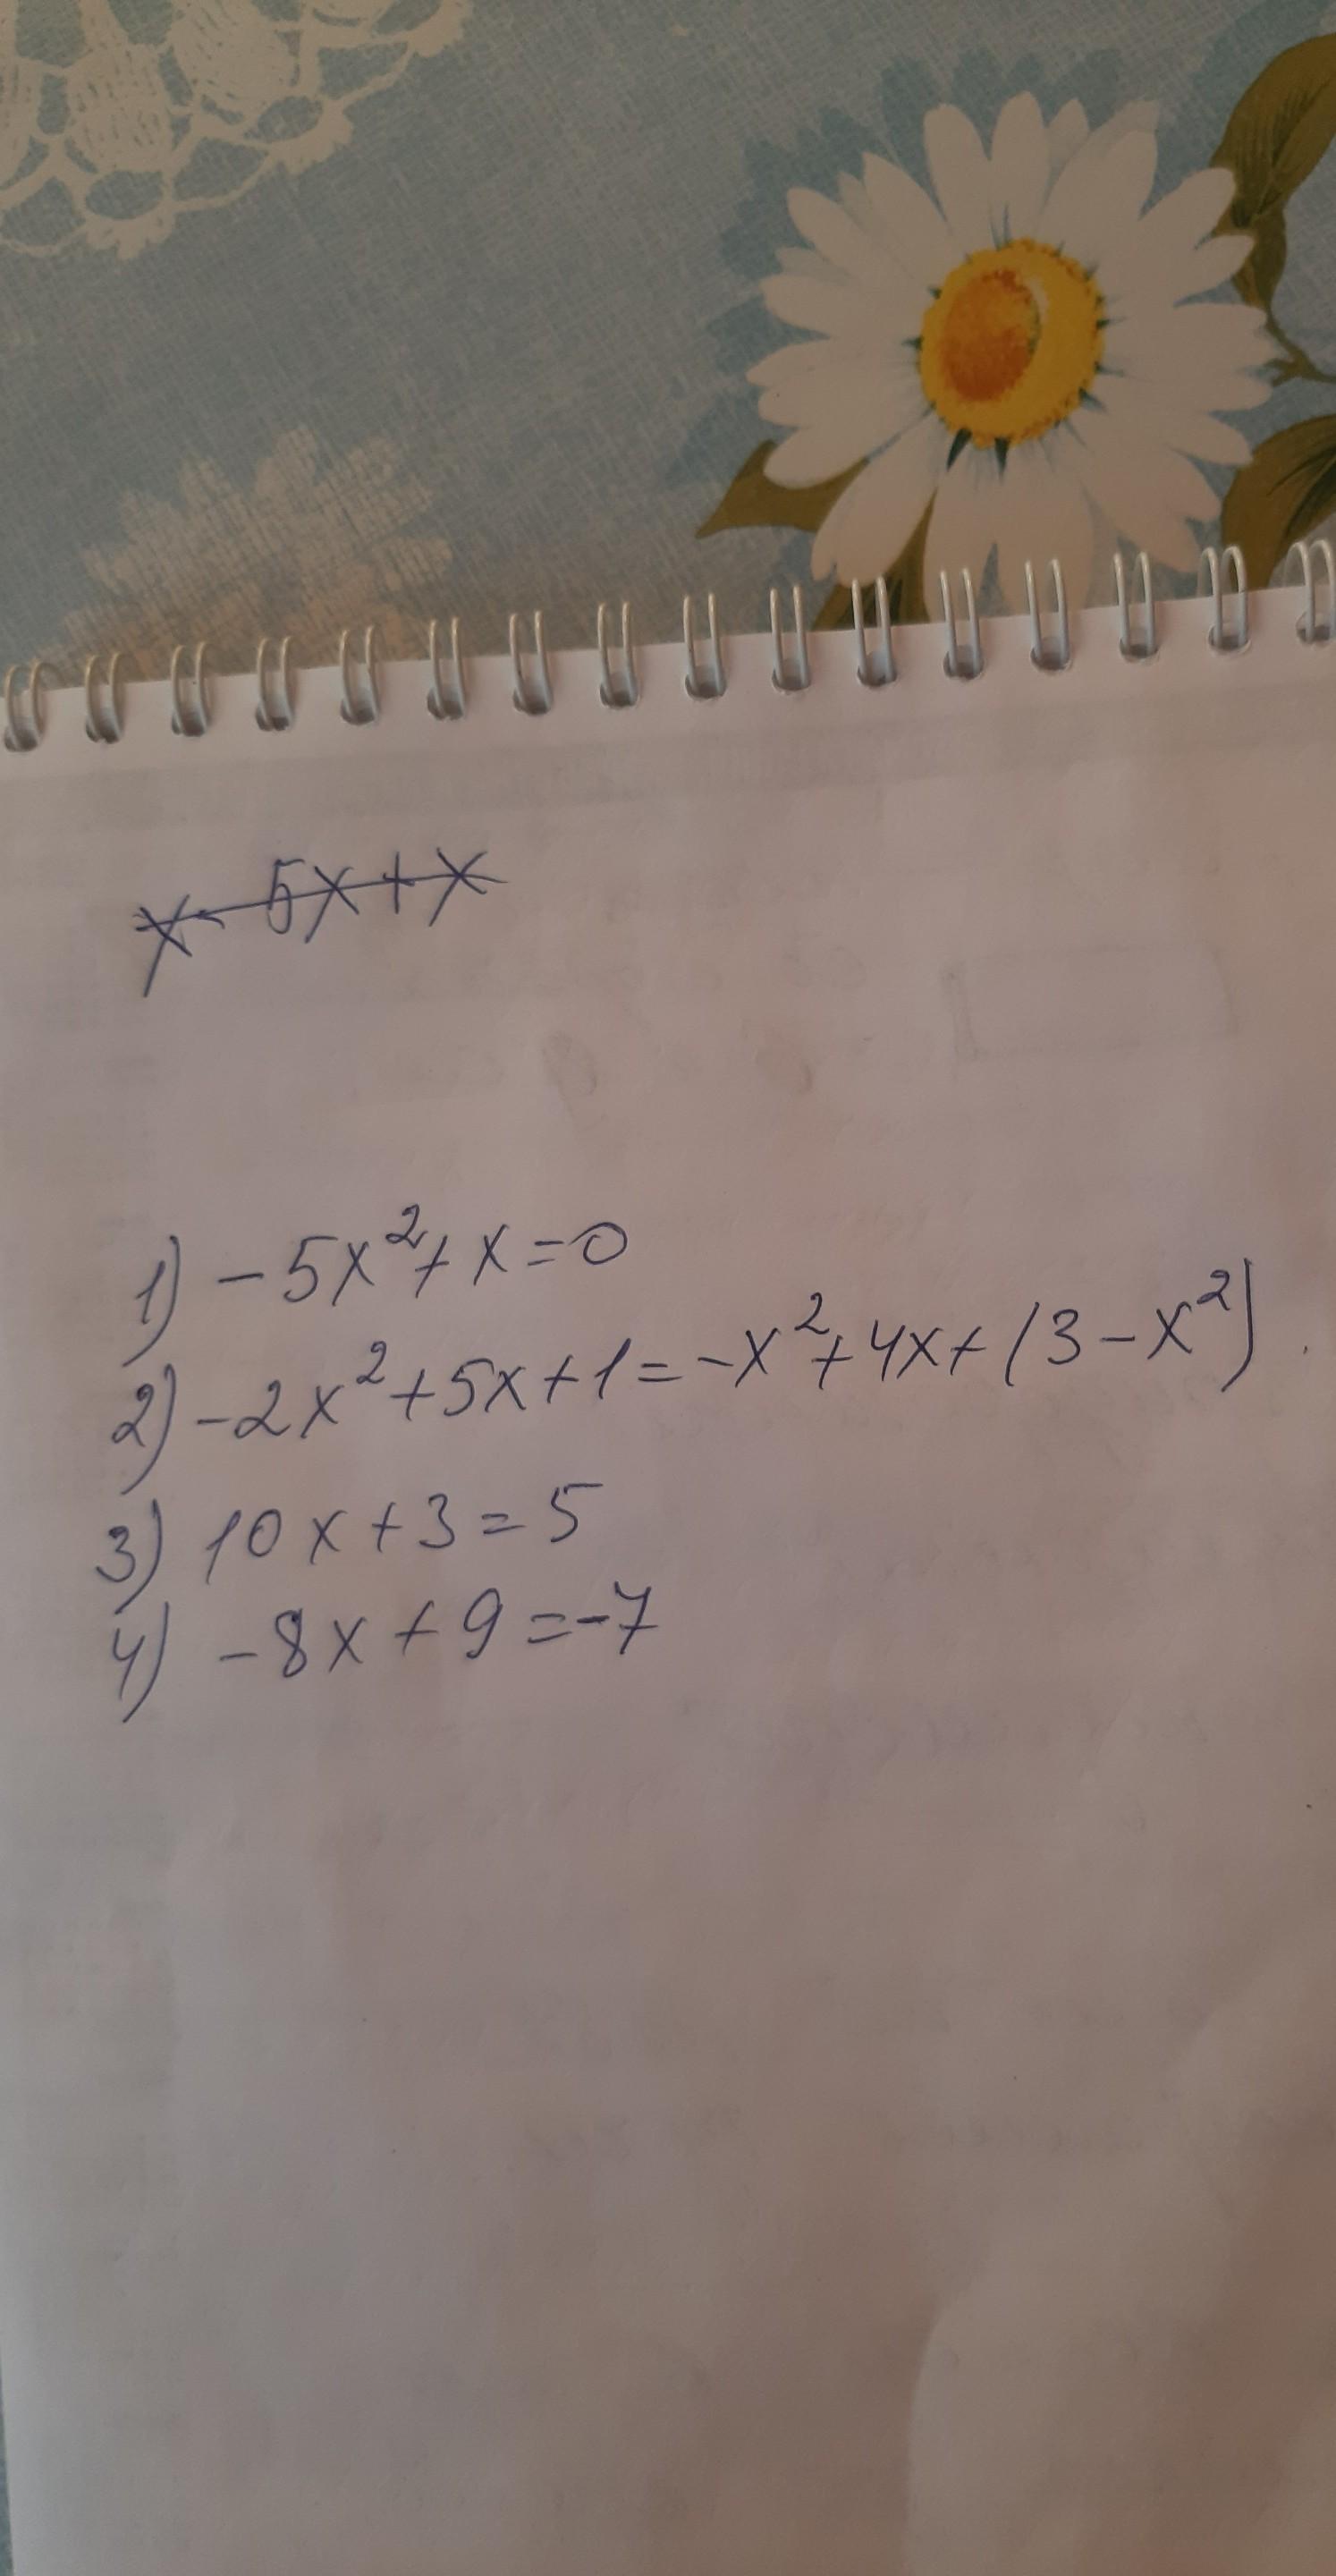 x - 5x + x
1) -5x²+x=0
2) -2x²+5x+1=-x²+4x+(3-x²).
3) 10x+3=5
4) -8x+9=-7